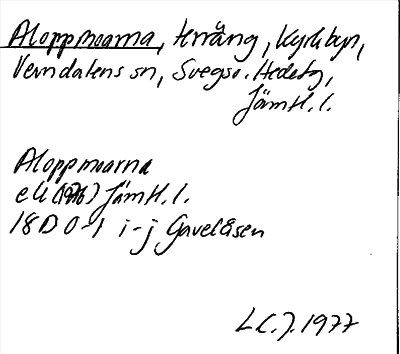 Aloppmoarna, terräng, Kyrkbyn,
Vemdalens sn, Svegs o. Hedetg,
Jämtl. l.
Aloppmoarna
ek (1976) Jämtl. l.
18D 0-1 i-j Gavelåsen
L C. J. 1977